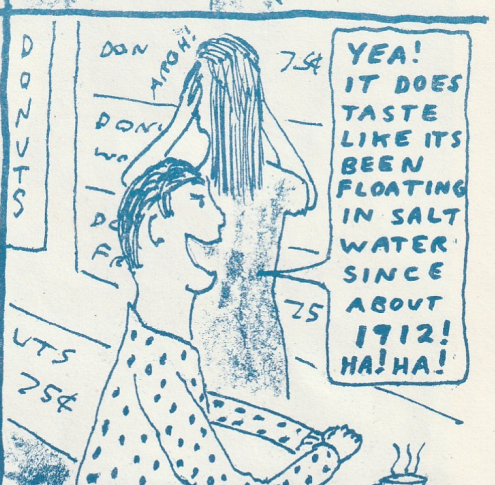 DONUTS
DON
ARGH!
75¢
DON
W
D
F
75
UTS
25¢
YEA!
IT DOES
TASTE
LIKE ITS
BEEN
FLOATING
IN SALT
WATER
SINCE
ABOUT
1912!
HA! HA!